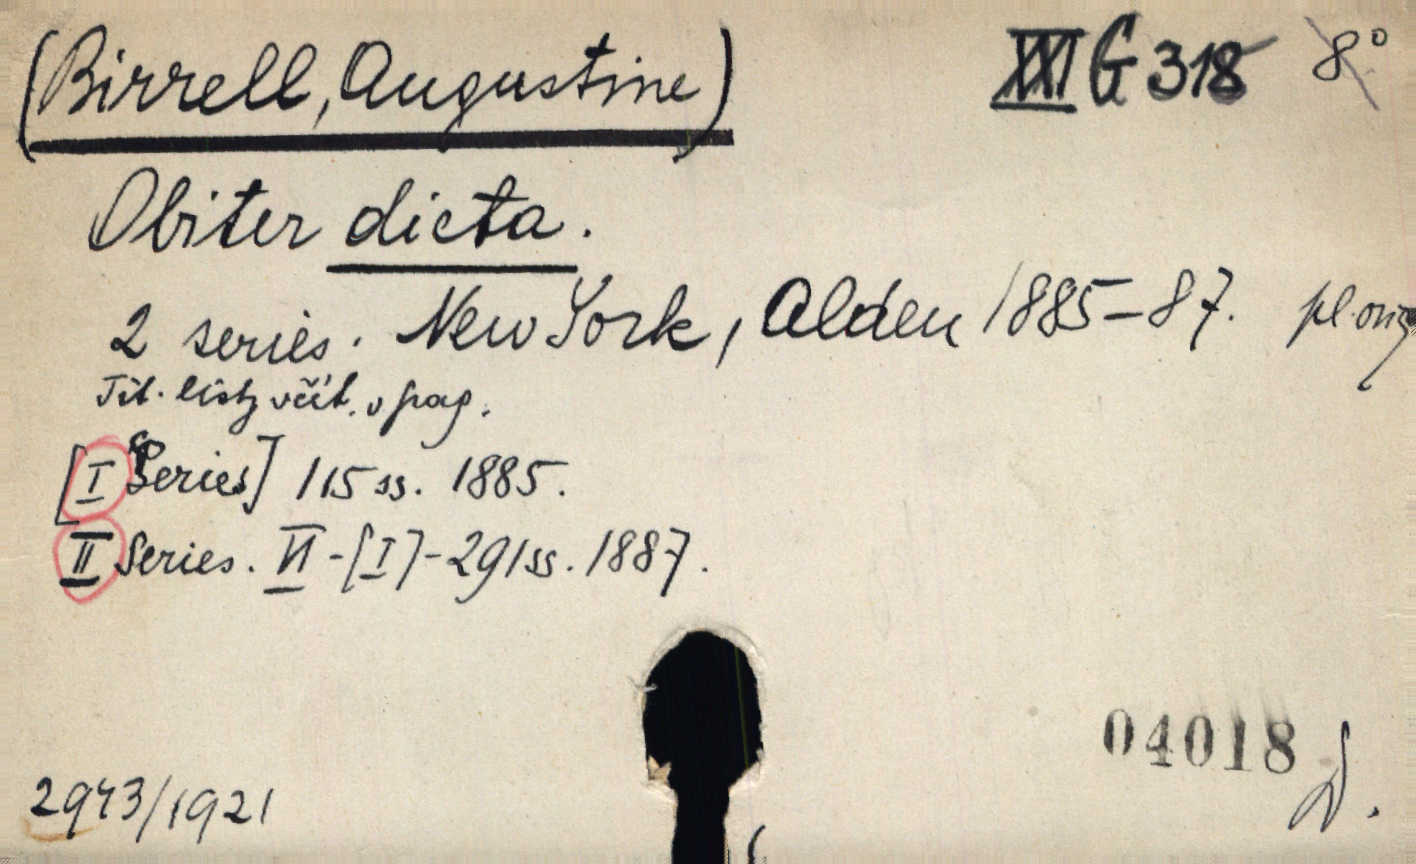 (Birrell, Augustine) XXI G 318 8°
Obiter dicta.
2 series. New York, Alden 1885–87. pl. orig
Tit. listy včít. v pag.
[I Series] 115 ss. 1885.
II Series. VI-[I]-291 ss. 1887.
04018
2943/1921